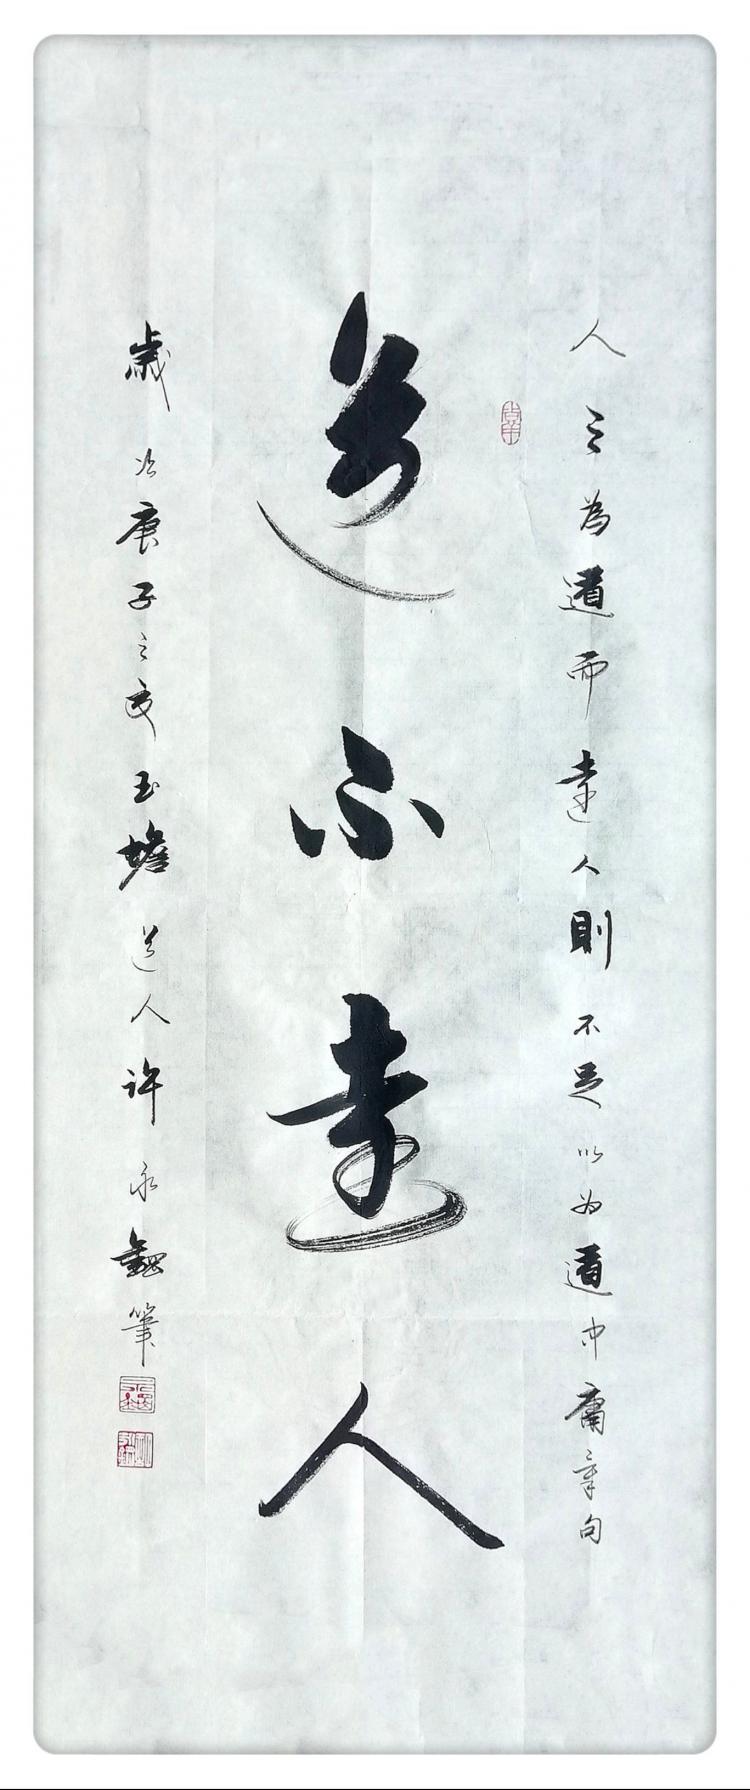 人之為道而遠人則不足以為道中庸章句
道不遠人
歲次庚子之夏玉蟾道人許永筆